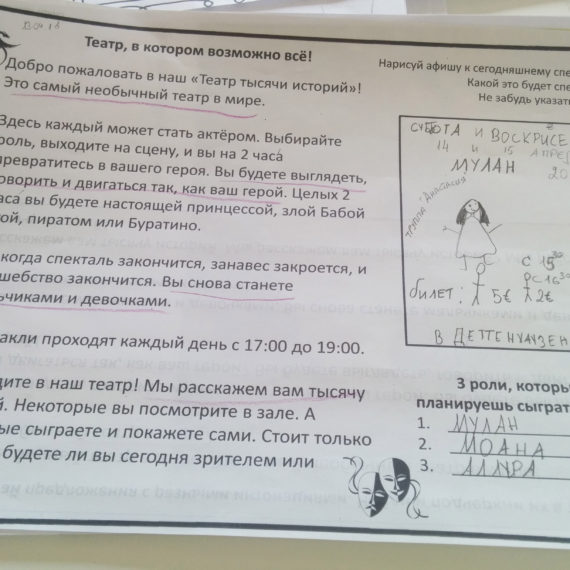 13.04.18
Театр, в котором возможно всё!
Добро пожаловать в наш «Театр тысячи историй»!
Это самый необычный театр в мире.
Здесь каждый может стать актёром. Выбирайте
роль, выходите на сцену, и вы на 2 часа́
превратитесь в вашего героя. Вы будете выглядеть,
оворить и двигаться так, как ваш герой. Целых 2
аса вы будете настоящей принцессой, злой Бабой
ой, пиратом или Буратино.
когда спекталь закончится, занавес закроется, и
шебство закончится. Вы снова станете
ьчиками и девочками.
акли проходят каждый день с 17:00 до 19:00.
дите в наш театр! Мы расскажем вам тысячу
й. Некоторые вы посмотрите в зале. А
ые сыграете и покажете сами. Стоит только
будете ли вы сегодня зрителем или
Нарисуй афишу к сегодняшнему спе
Какой это будет спе
Не забудь указат
СУББОТА И ВОСКРИСЕ
14 и 15 АПРЕ
МУЛАН 20
труппа "Анастасия"
С 15³⁰
ДС 16³⁰
билет: 5€ 2€
В ДЕТТЕНХАУЗЕН
3 роли, которы
планируешь сыграт
1. МУЛАН
2. МОАНА
3. АЛЛУРА